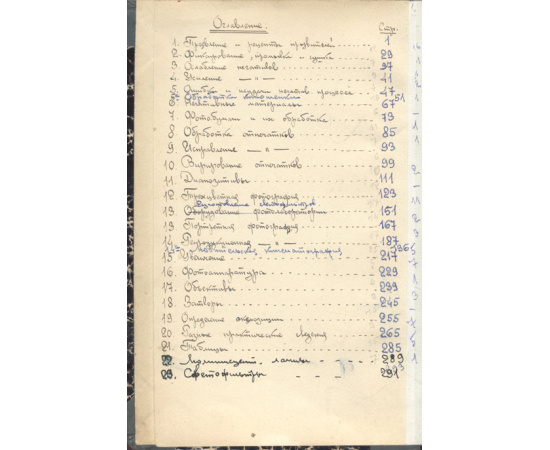 Оглавление: Стр.
1. Проявление и рецепты проявителей 1
2. Фиксирование, промывка и сушка 29
3. Ослабление негативов 37
4. Усиление —"— 41
5. Ошибки и неудачи негатив. процесса 47
Обработка 51
6. Негативные материалы 67
7. Фотобумаги и их обработка 73
8. Обработка отпечатков 85
9. Исправление —"— 93
10. Вирирование отпечатков 99
11. Диапозитивы 111
12. Трехцветная фотография 123
13. Оборудование фотолаборатории 151
13. Портретная фотография 167
14. Репродукционная —"— 187
Любительская кинематография
15. Увеличение 217
16. Фотоаппаратура 229
17. Объективы 233
18. Затворы 245
19. Определение экспозиции 255
20. Разные практические сведения 265
21. Таблицы 285
22. Люминесцент. лампы 289
23. Светофильтры 291